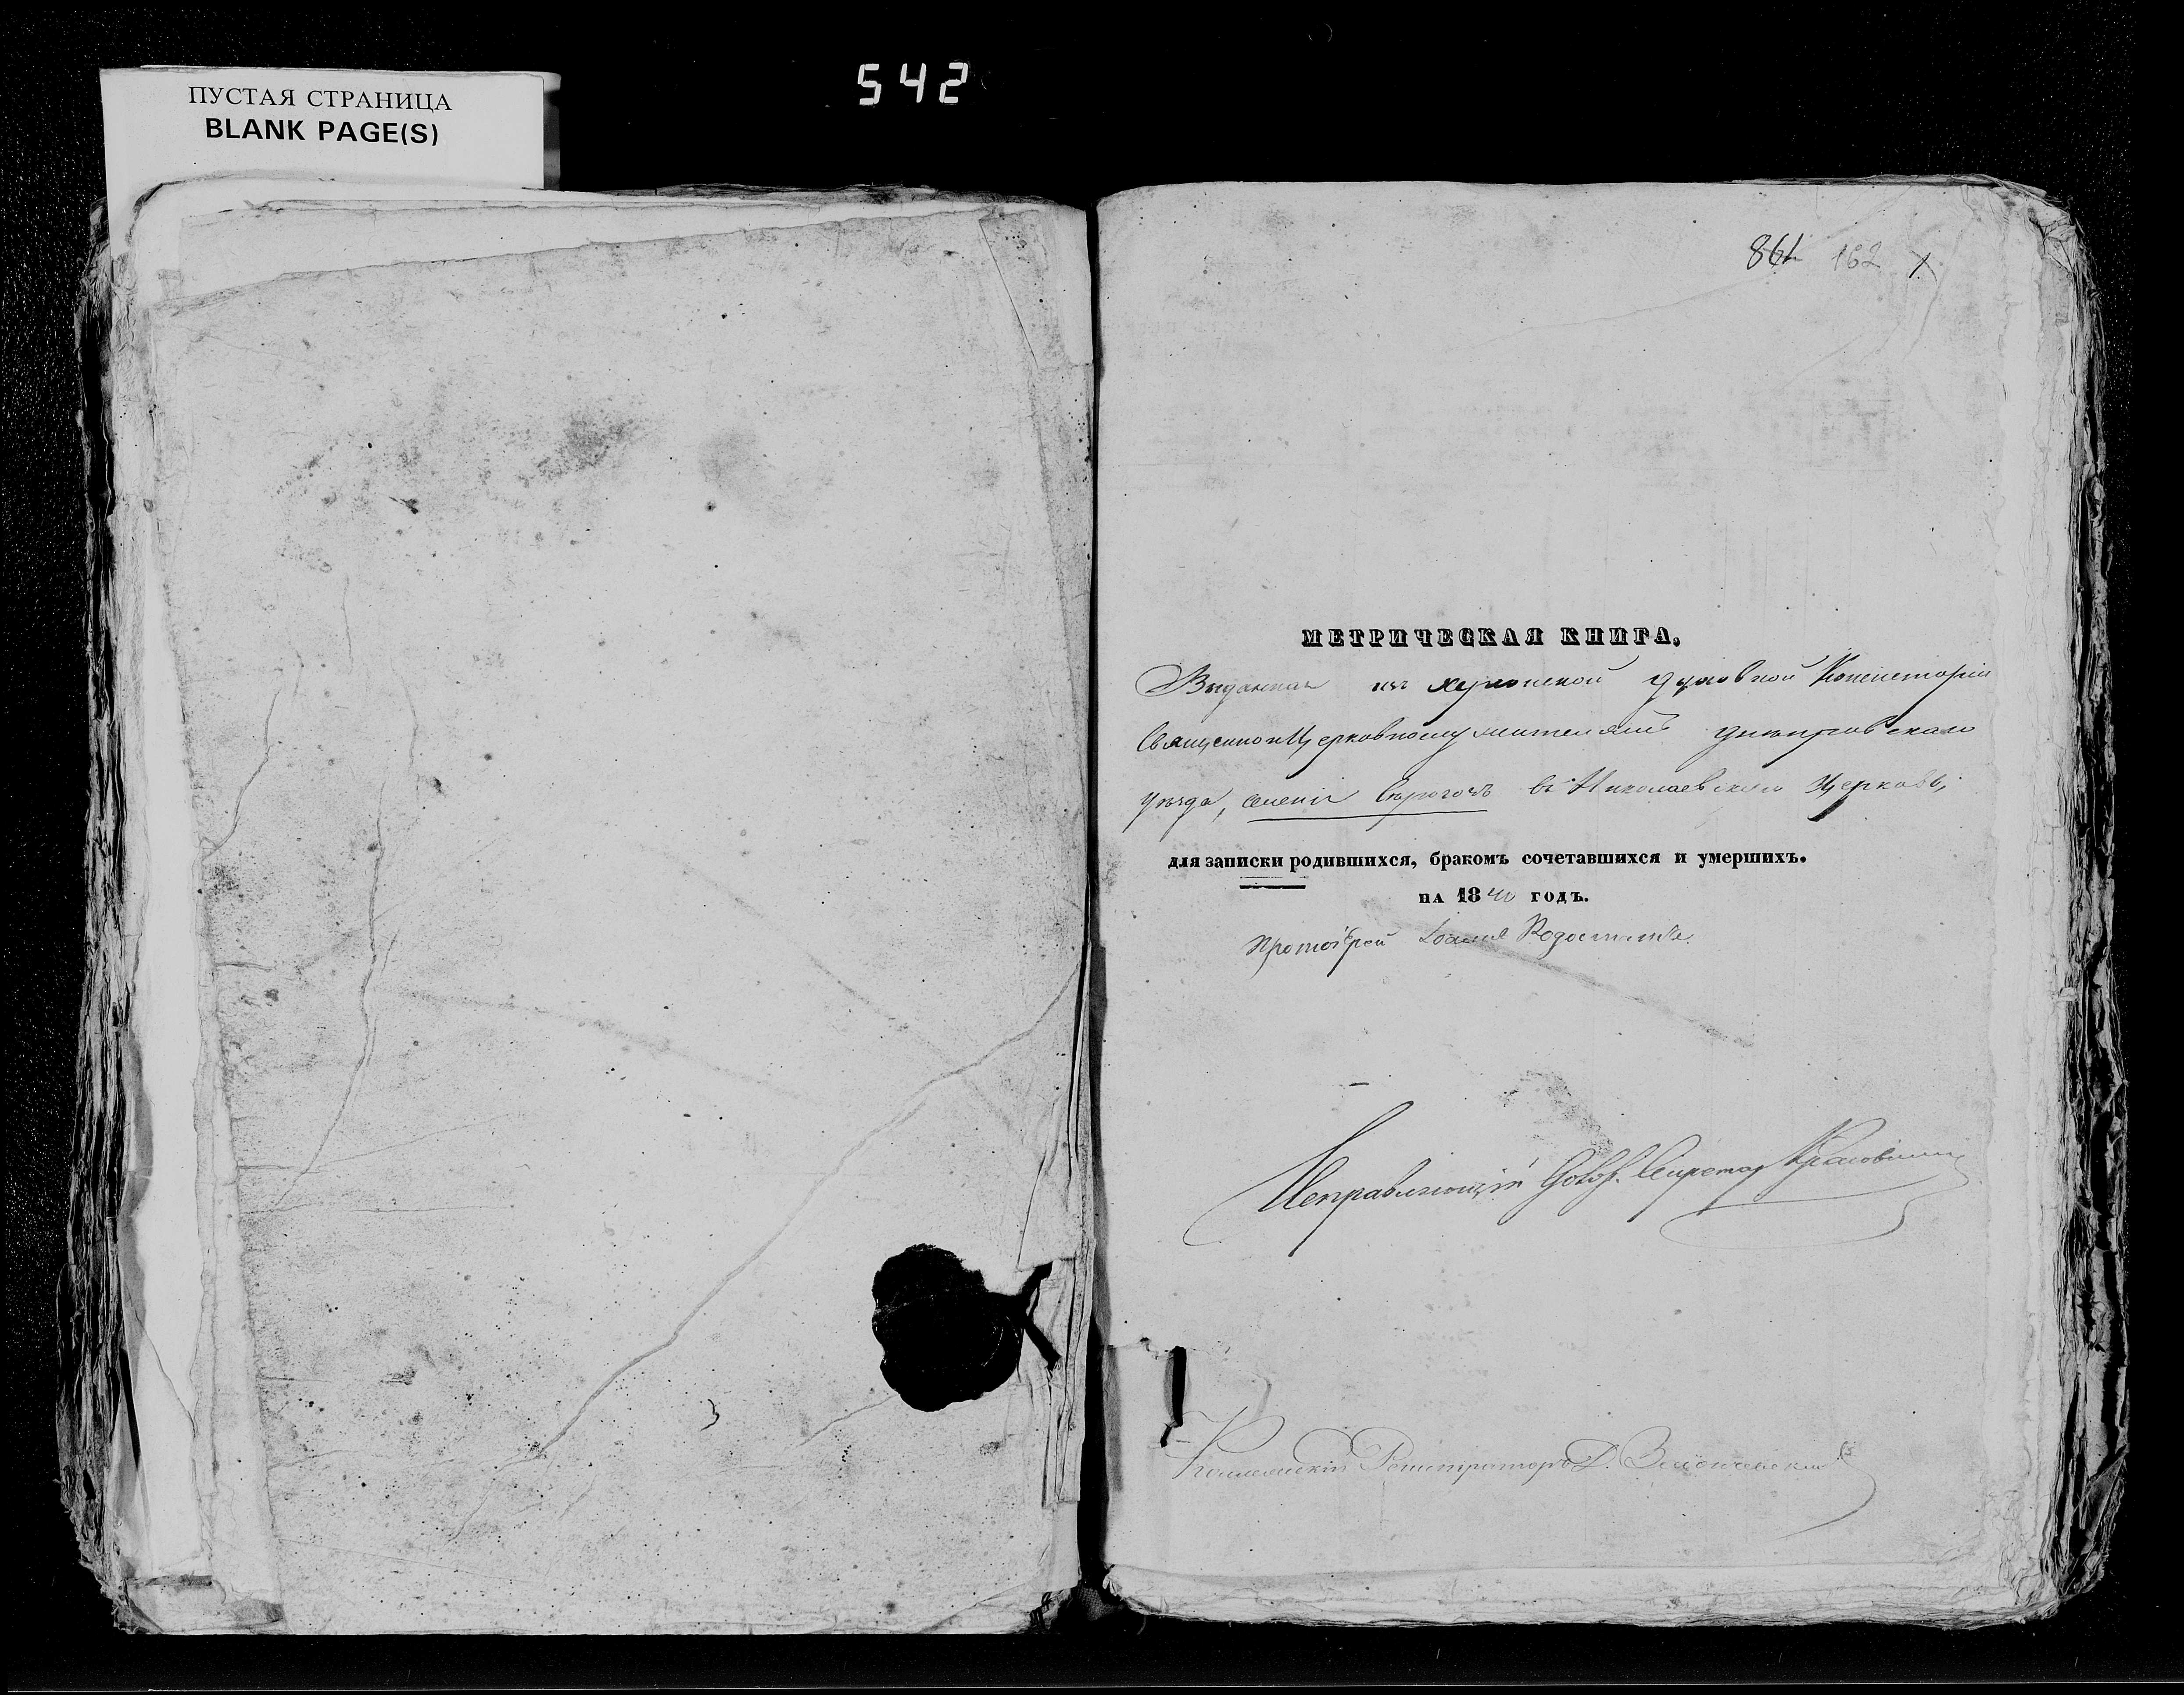 ПУСТАЯ СТРАНИЦА
BLANK PAGE(S)
542
861 162 1
МЕТРИЧЕСКАЯ КНИГА,
Выданная изъ Херсонской Духовной Консисторіи
Священноицерковнослужителямъ Днѣпровскаго
уѣзда, селенія Сѣрогозъ въ Николаевскую Церковь,
для записки родившихся, бракомъ сочетавшихся и умершихъ.
НА 1840 ГОДЪ.
Протоіерей Іоаннъ
Исправляющій Секретар
Коллежскій Регистраторъ